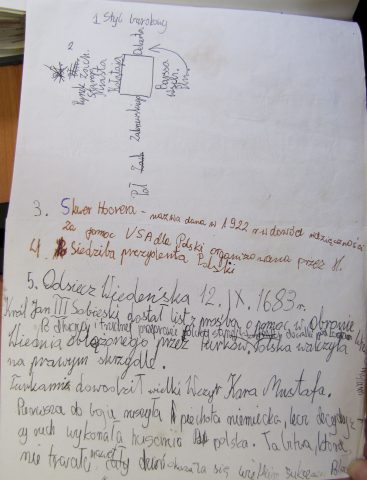 1 Styl barokowy
2
Rynek Zach.
Strony
Miasta
Kołłątaja
Dekerta
Barssa
Zakrzewskiego
Płd
3. Skwer Hoovera - nazwa dana w 1922 r w dowód wdzięczności
za pomoc USA dla Polski organizowaną przez H.
4. Siedziba prezydenta Polski
5. Odsiecz Wiedeńska 12. IX. 1683 r.
Król Jan III Sobieski dostał list z prośbą o pomoc w obronie
Po długiej i trudnej przeprawie
Wiednia oblężonego przez turków. Polska walczyła
na prawym skrzydle.
Turkami dowodził wielki Wezyr Kara Mustafa.
Pierwsza do boju ruszyła piechota niemiecka, lecz decydują-
cy ruch wykonała husaria polska. Ta bitwa, która
nie trwała nawet cały dzień okazała się wielkim sukcesem